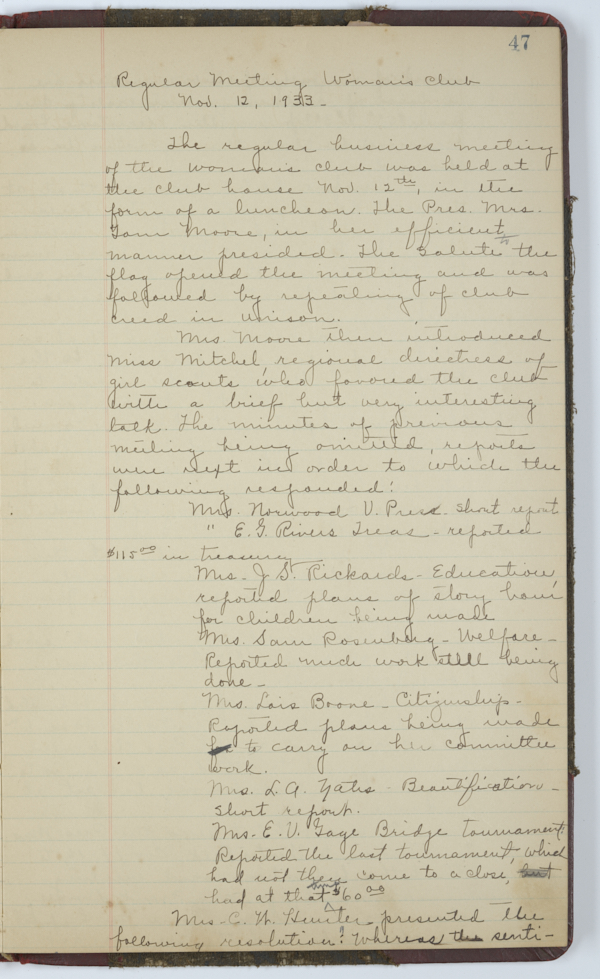 47
Regular Meeting Woman's Club
Nov. 12, 1933-
The regular business meeting
of the woman's club was held at
the club house Nov. 12th, in the
form of a luncheon. The Pres. Mrs.
Tom Moore, in her efficient
manner presided. The Salute to the
flag opened the meeting and was
followed by repeating of club
creed in unison.
Mrs. Moore then introduced
Miss Mitchel, regional directress of
girl scouts who favored the club
with a brief but very interesting
talk. The minutes of previous
meeting being omitted, reports
were next in order to which the
following responded:
Mrs. Norwood V. Press. short report
" E. G. Rivers Treas - reported
$115.00 in treasury
Mrs - J. S. Rickards - Education,
reported plans of story hour
for children being made
Mrs. Sam Rosenberg - Welfare -
Reported much work still being
done -
Mrs. Lois Boone - Citizenship -
Reported plans being made
to carry on her committee
work.
Mrs. L. A. Yates - Beautification -
short report.
Mrs - E. V. Gage Bridge tournament.
Reported the last tournament, which
had not then come to a close, but
had at that time $60.00
Mrs - C. W. Hunter presented the
following resolution: Whereas the senti-